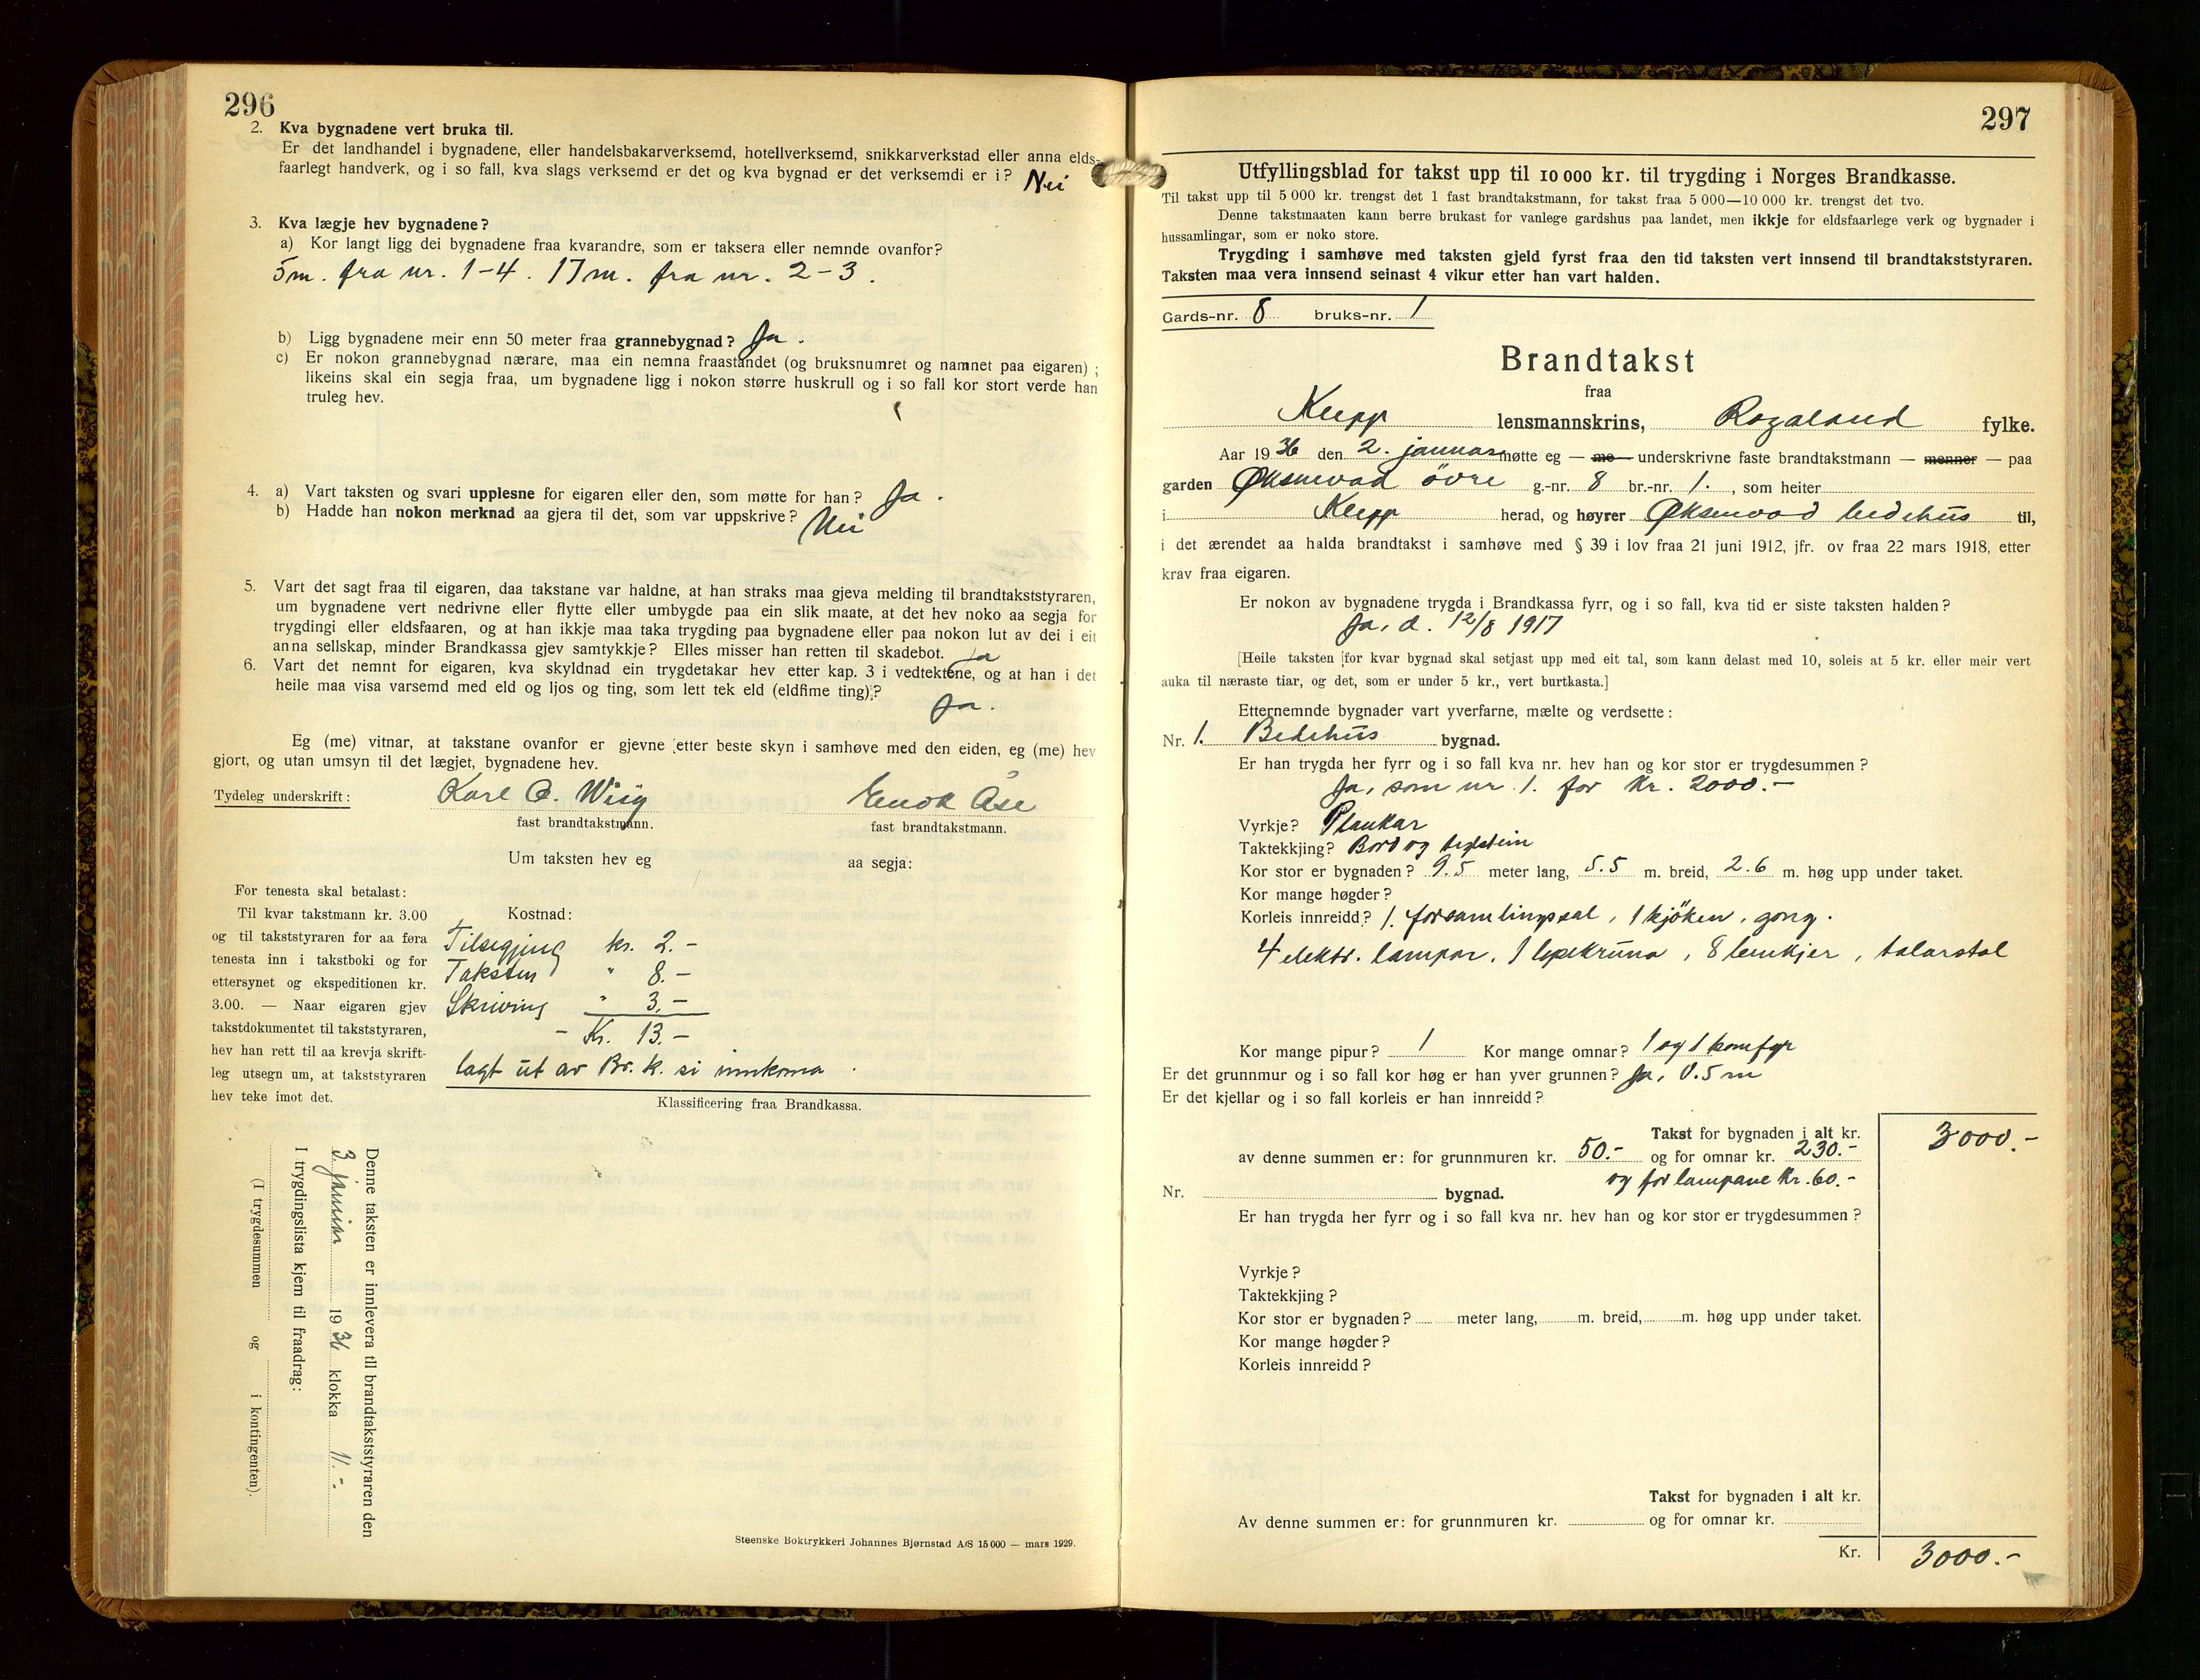 296
2. Kva bygnadene vert bruka til.
Er det landhandel i bygnadene, eller handelsbakarverksemd, hotellverksemd, snikkarverkstad eller anna elds-
faarlegt handverk, og i so fall, kva slags verksemd er det og kva bygnad er det verksemdi er i? Nei
3. Kva lægje hev bygnadene?
a) Kor langt ligg dei bygnadene fraa kvarandre, som er taksera eller nemnde ovanfor?
5 m. fra nr. 1-4. 17 m. fra nr. 2-3.
b) Ligg bygnadene meir enn 50 meter fraa grannebygnad? Ja.
c) Er nokon grannebygnad nærare, maa ein nemna fraastandet (og bruksnumret og namnet paa eigaren);
likeins skal ein segja fraa, um bygnadene ligg i nokon større huskrull og i so fall kor stort verde han
truleg hev.
4. a) Vart taksten og svari upplesne for eigaren eller den, som møtte for han? Ja.
b) Hadde han nokon merknad aa gjera til det, som var uppskrive? Nei
5. Vart det sagt fraa til eigaren, daa takstane var haldne, at han straks maa gjeva melding til brandtakststyraren,
um bygnadene vert nedrivne eller flytte eller umbygde paa ein slik maate, at det hev noko aa segja for
trygdingi eller eldsfaaren, og at han ikkje maa taka trygding paa bygnadene eller paa nokon lut av dei i eit
anna sellskap, minder Brandkassa gjev samtykkje? Elles misser han retten til skadebot. Ja
6. Vart det nemnt for eigaren, kva skyldnad ein trygdetakar hev etter kap. 3 i vedtektene, og at han i det
heile maa visa varsemd med eld og ljos og ting, som lett tek eld (eldfime ting)? Ja.
Eg (me) vitnar, at takstane ovanfor er gjevne etter beste skyn i samhøve med den eiden, eg (me) hev
gjort, og utan umsyn til det lægjet, bygnadene hev.
Tydeleg underskrift: Karl O. Wiig Enok Åse
fast brandtakstmann. fast brandtakstmann.
Um taksten hev eg aa segja:
For tenesta skal betalast:
Til kvar takstmann kr. 3.00
og til takststyraren for aa føra
tenesta inn i takstboki og for
ettersynet og ekspeditionen kr.
3.00. — Naar eigaren gjev
takstdokumentet til takststyraren,
hev han rett til aa krevja skrift-
leg utsegn um, at takststyraren
hev teke imot det.
Kostnad:
Tilsegjing kr. 2.-
Taksten " 8.-
Skriving " 3.-
- Kr. 13.-
lagt ut av Br. k. si innkoma.
Klassificering fraa Brandkassa.
Denne taksten er innlevera til brandtakststyraren den
3 januar 1936 klokka 11.-
I trygdingslista kjem til fraadrag:
(I trygdesummen og i kontingenten).
Steenske Boktrykkeri Johannes Bjørnstad A/S 15 000 — mars 1929.
297
Utfyllingsblad for takst upp til 10 000 kr. til trygding i Norges Brandkasse.
Til takst upp til 5 000 kr. trengst det 1 fast brandtakstmann, for takst fraa 5 000—10 000 kr. trengst det tvo.
Denne takstmaaten kann berre brukast for vanlege gardshus paa landet, men ikkje for eldsfaarlege verk og bygnader i
hussamlingar, som er noko store.
Trygding i samhøve med taksten gjeld fyrst fraa den tid taksten vert innsend til brandtakststyraren.
Taksten maa vera innsend seinast 4 vikur etter han vart halden.
Gards-nr. 8 bruks-nr. 1
Brandtakst
fraa
Klepp lensmannskrins, Rogaland fylke.
Aar 1936 den 2. januar møtte eg — me — underskrivne faste brandtakstmann — menner — paa
garden Øksnevad övre g.-nr. 8 br.-nr. 1. , som heiter
i Klepp herad, og høyrer Øksnevad bedehus til,
i det ærendet aa halda brandtakst i samhøve med § 39 i lov fraa 21 juni 1912, jfr. ov fraa 22 mars 1918, etter
krav fraa eigaren.
Er nokon av bygnadene trygda i Brandkassa fyrr, og i so fall, kva tid er siste taksten halden?
Ja, d. 12/8 1917
[Heile taksten for kvar bygnad skal setjast upp med eit tal, som kann delast med 10, soleis at 5 kr. eller meir vert
auka til næraste tiar, og det, som er under 5 kr., vert burtkasta.]
Etternemnde bygnader vart yverfarne, mælte og verdsette:
Nr. 1. Bedehus bygnad.
Er han trygda her fyrr og i so fall kva nr. hev han og kor stor er trygdesummen?
Ja, som nr. 1. for Kr. 2000.-
Vyrkje? Plankar
Taktekkjing? Bord og teglstein
Kor stor er bygnaden? 9.5 meter lang, 5.5 m. breid, 2.6 m. høg upp under taket.
Kor mange høgder?
Korleis innreidd? 1. forsamlingssal, 1 kjöken, gong.
4 elektr. lampar, 1 , 8 , talarstol
Kor mange pipur? 1 Kor mange omnar? 1 og 1 komfyr
Er det grunnmur og i so fall kor høg er han yver grunnen? Ja, 0.5 m
Er det kjellar og i so fall korleis er han innreidd?
Takst for bygnaden i alt kr. 3000.-
av denne summen er: for grunnmuren kr. 50.- og for omnar kr. 230.-
og for lampane Kr. 60.-
Nr. bygnad.
Er han trygda her fyrr og i so fall kva nr. hev han og kor stor er trygdesummen?
Vyrkje?
Taktekkjing?
Kor stor er bygnaden? meter lang, m. breid, m. høg upp under taket.
Kor mange høgder?
Korleis innreidd?
Takst for bygnaden i alt kr.
Av denne summen er: for grunnmuren kr. og for omnar kr.
Kr. 3000.-